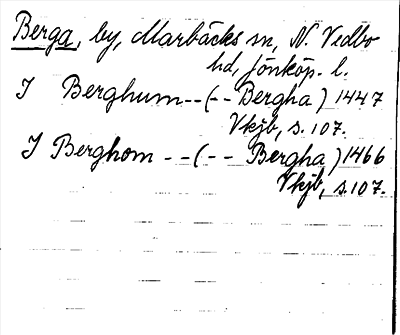 Berga, by, Marbäcks sn, N. Vedbo
hd, Jönköp. l.
I Berghum--(-- Bergha) 1447
Vkjb, s. 107.
I Berghom --(-- Bergha) 1466
Vkjb, s. 107.